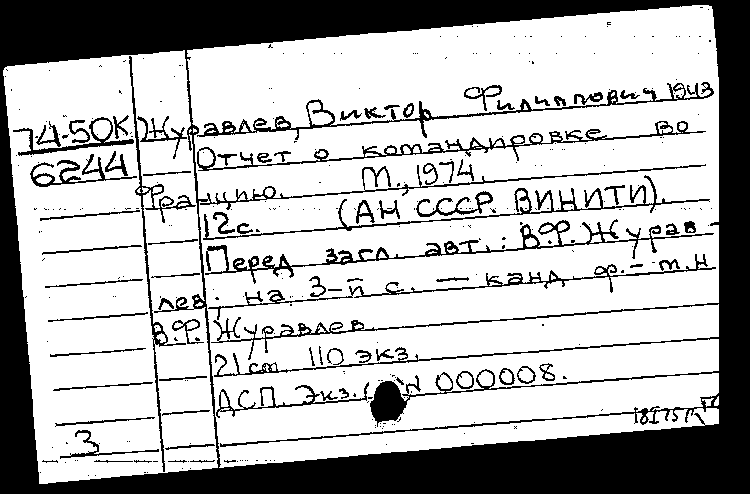 74-50К Журавлев, Виктор Филиппович 1943
6244 Отчет о командировке во
Францию. М., 1974.
12с. (АН СССР. ВИНИТИ).
Перед загл. авт.: В.Ф. Журав-
лев; на 3-й с. — канд. ф.-м.н
В.Ф. Журавлев.
21 cm 110 экз.
ДСП. Экз. N 000008.
3